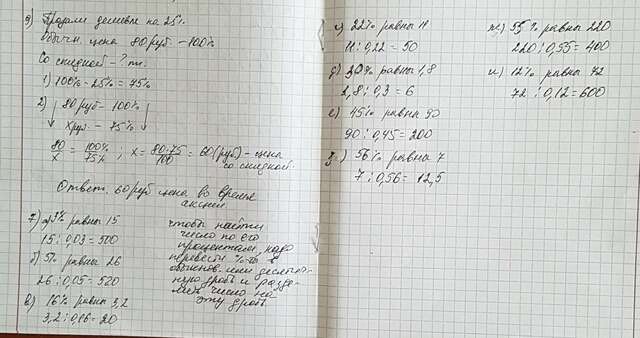 9) Продали дешевы на 25%
Обычн. цена 80 руб. - 100%
Со скидкой - ? т.
1) 100% - 25% = 75%
2) 80 руб - 100%
х руб. - 75%
80/х = 100%/75% ; х = 80·75/100 = 60 (руб) - цена
со скидкой.
Ответ. 60 руб цена во время
акции.
7.) а) 3% равны 15
15 : 0,03 = 500
б) 5% равны 26
26 : 0,05 = 520
в) 16% равны 3,2
3,2 : 0,16 = 20
чтобы найти
число по его
процентам, надо
перевести %-ты в
обыкнов. или десятич-
ную дробь и разде-
лить число на
эту дробь.
22% равны 11
11 : 0,22 = 50
д) 30% равны 1,8
1,8 : 0,3 = 6
е) 45% равны 90
90 : 0,45 = 200
з.) 56% равна 7
7 : 0,56 = 12,5
ж.) 55% равны 220
220 : 0,55 = 400
и) 12% равны 72
72 : 0,12 = 600